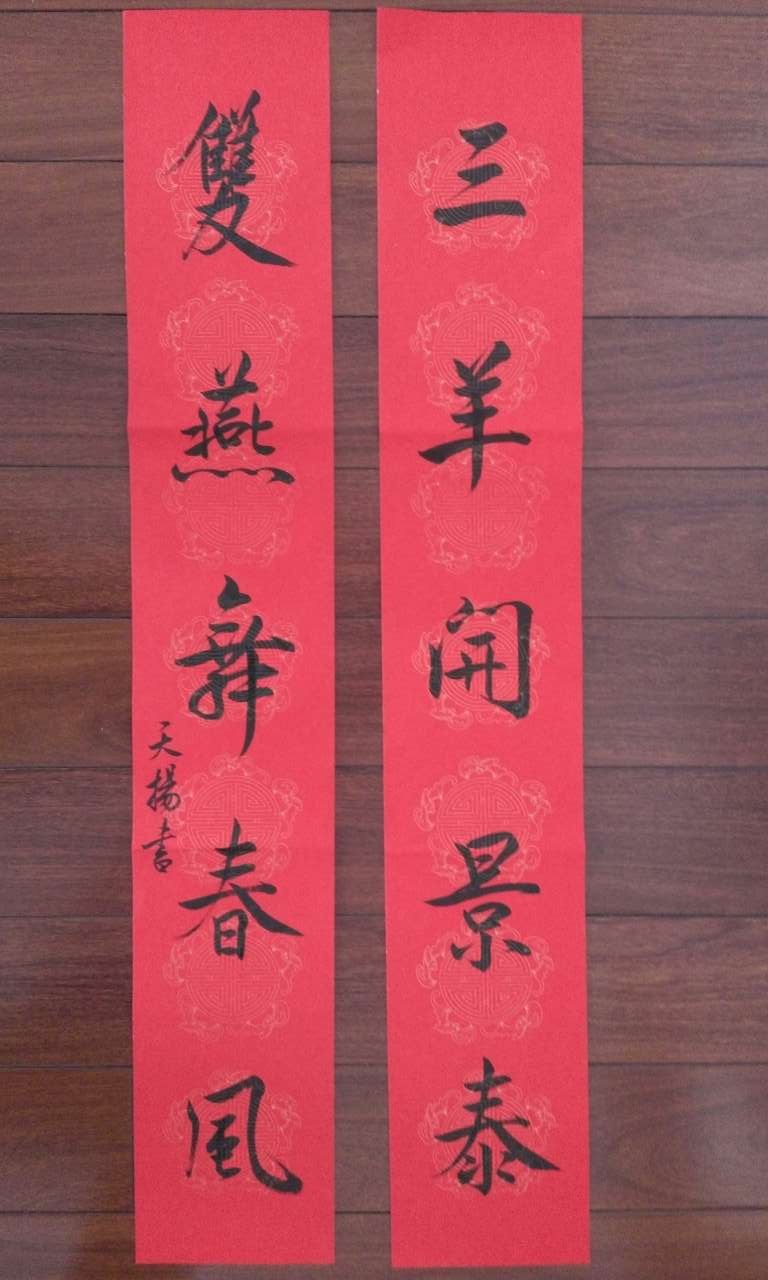 三羊開景泰
雙燕舞春風
天揚書